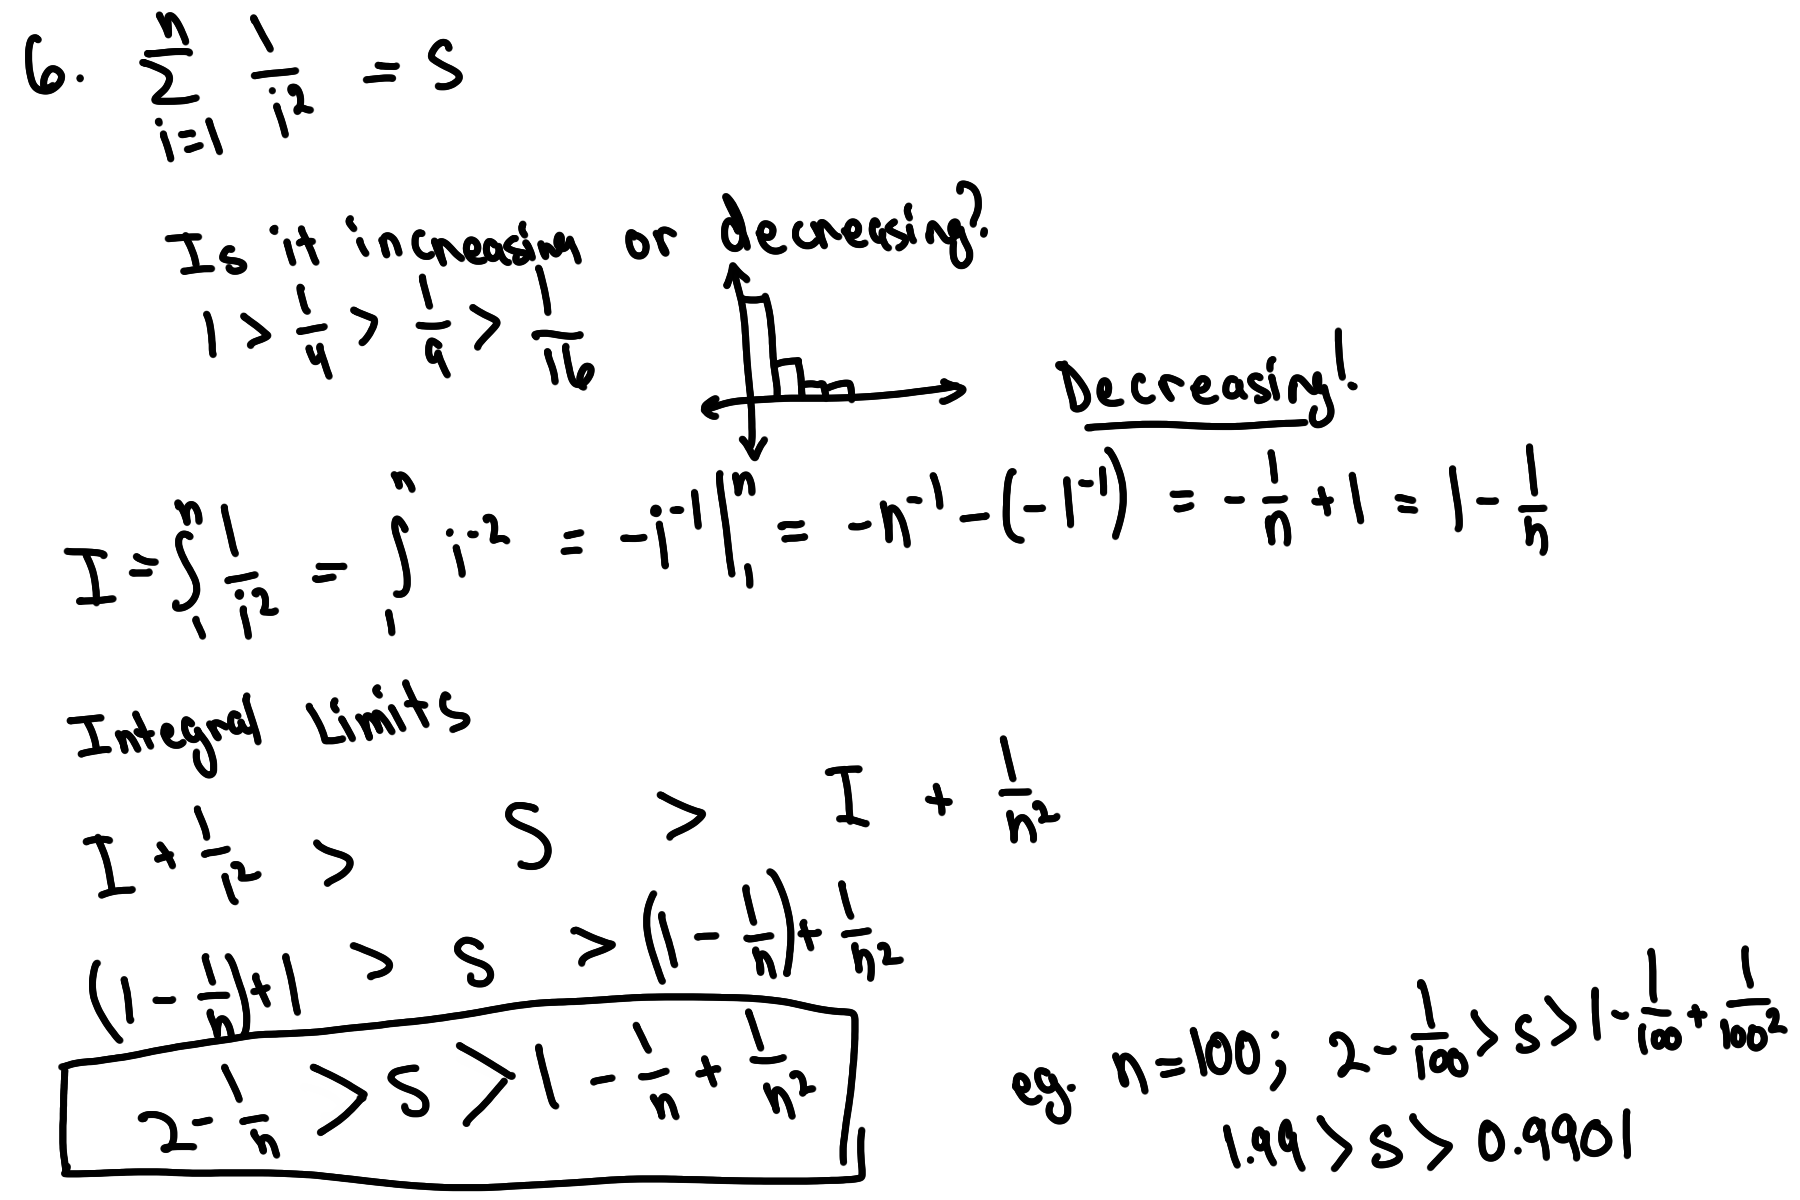 6. \sum_{i=1}^{n} \frac{1}{i^2} = S
Is it increasing or decreasing?
1 > \frac{1}{4} > \frac{1}{9} > \frac{1}{16}
Decreasing!
I = \int_1^n \frac{1}{i^2} = \int_1^n i^{-2} = -i^{-1} |_1^n = -n^{-1} - (-1^{-1}) = -\frac{1}{n} + 1 = 1 - \frac{1}{n}
Integral Limits
I + \frac{1}{i^2} > S > I + \frac{1}{n^2}
(1 - \frac{1}{n}) + 1 > S > (1 - \frac{1}{n}) + \frac{1}{n^2}
2 - \frac{1}{n} > S > 1 - \frac{1}{n} + \frac{1}{n^2}
eg. n = 100; 2 - \frac{1}{100} > S > 1 - \frac{1}{100} + \frac{1}{100^2}
1.99 > S > 0.9901